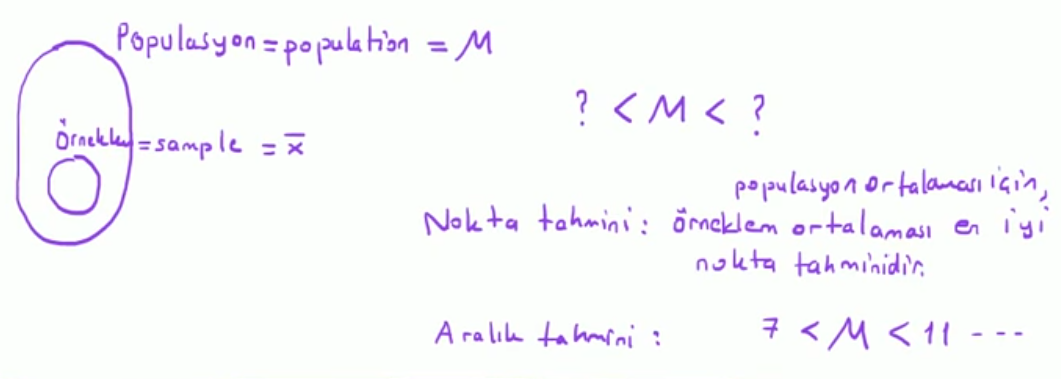 Populasyon = population = M
? < M < ?
örneklem = sample = x̄
populasyon ortalaması için,
Nokta tahmini : örneklem ortalaması en iyi
nokta tahminidir.
Aralık tahmini : 7 < M < 11 ---